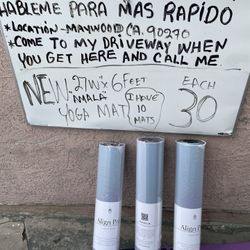 HABLEME PARA MAS RAPIDO
*LOCATION-MAYWOOD CA. 90270
*COME TO MY DRIVEWAY WHEN
YOU GET HERE AND CALL ME.
NEW 27IN X 6 FEET EACH
"AMALA" I HAVE 30
YOGA MAT 10
MATS
Align Pro
Align Pro